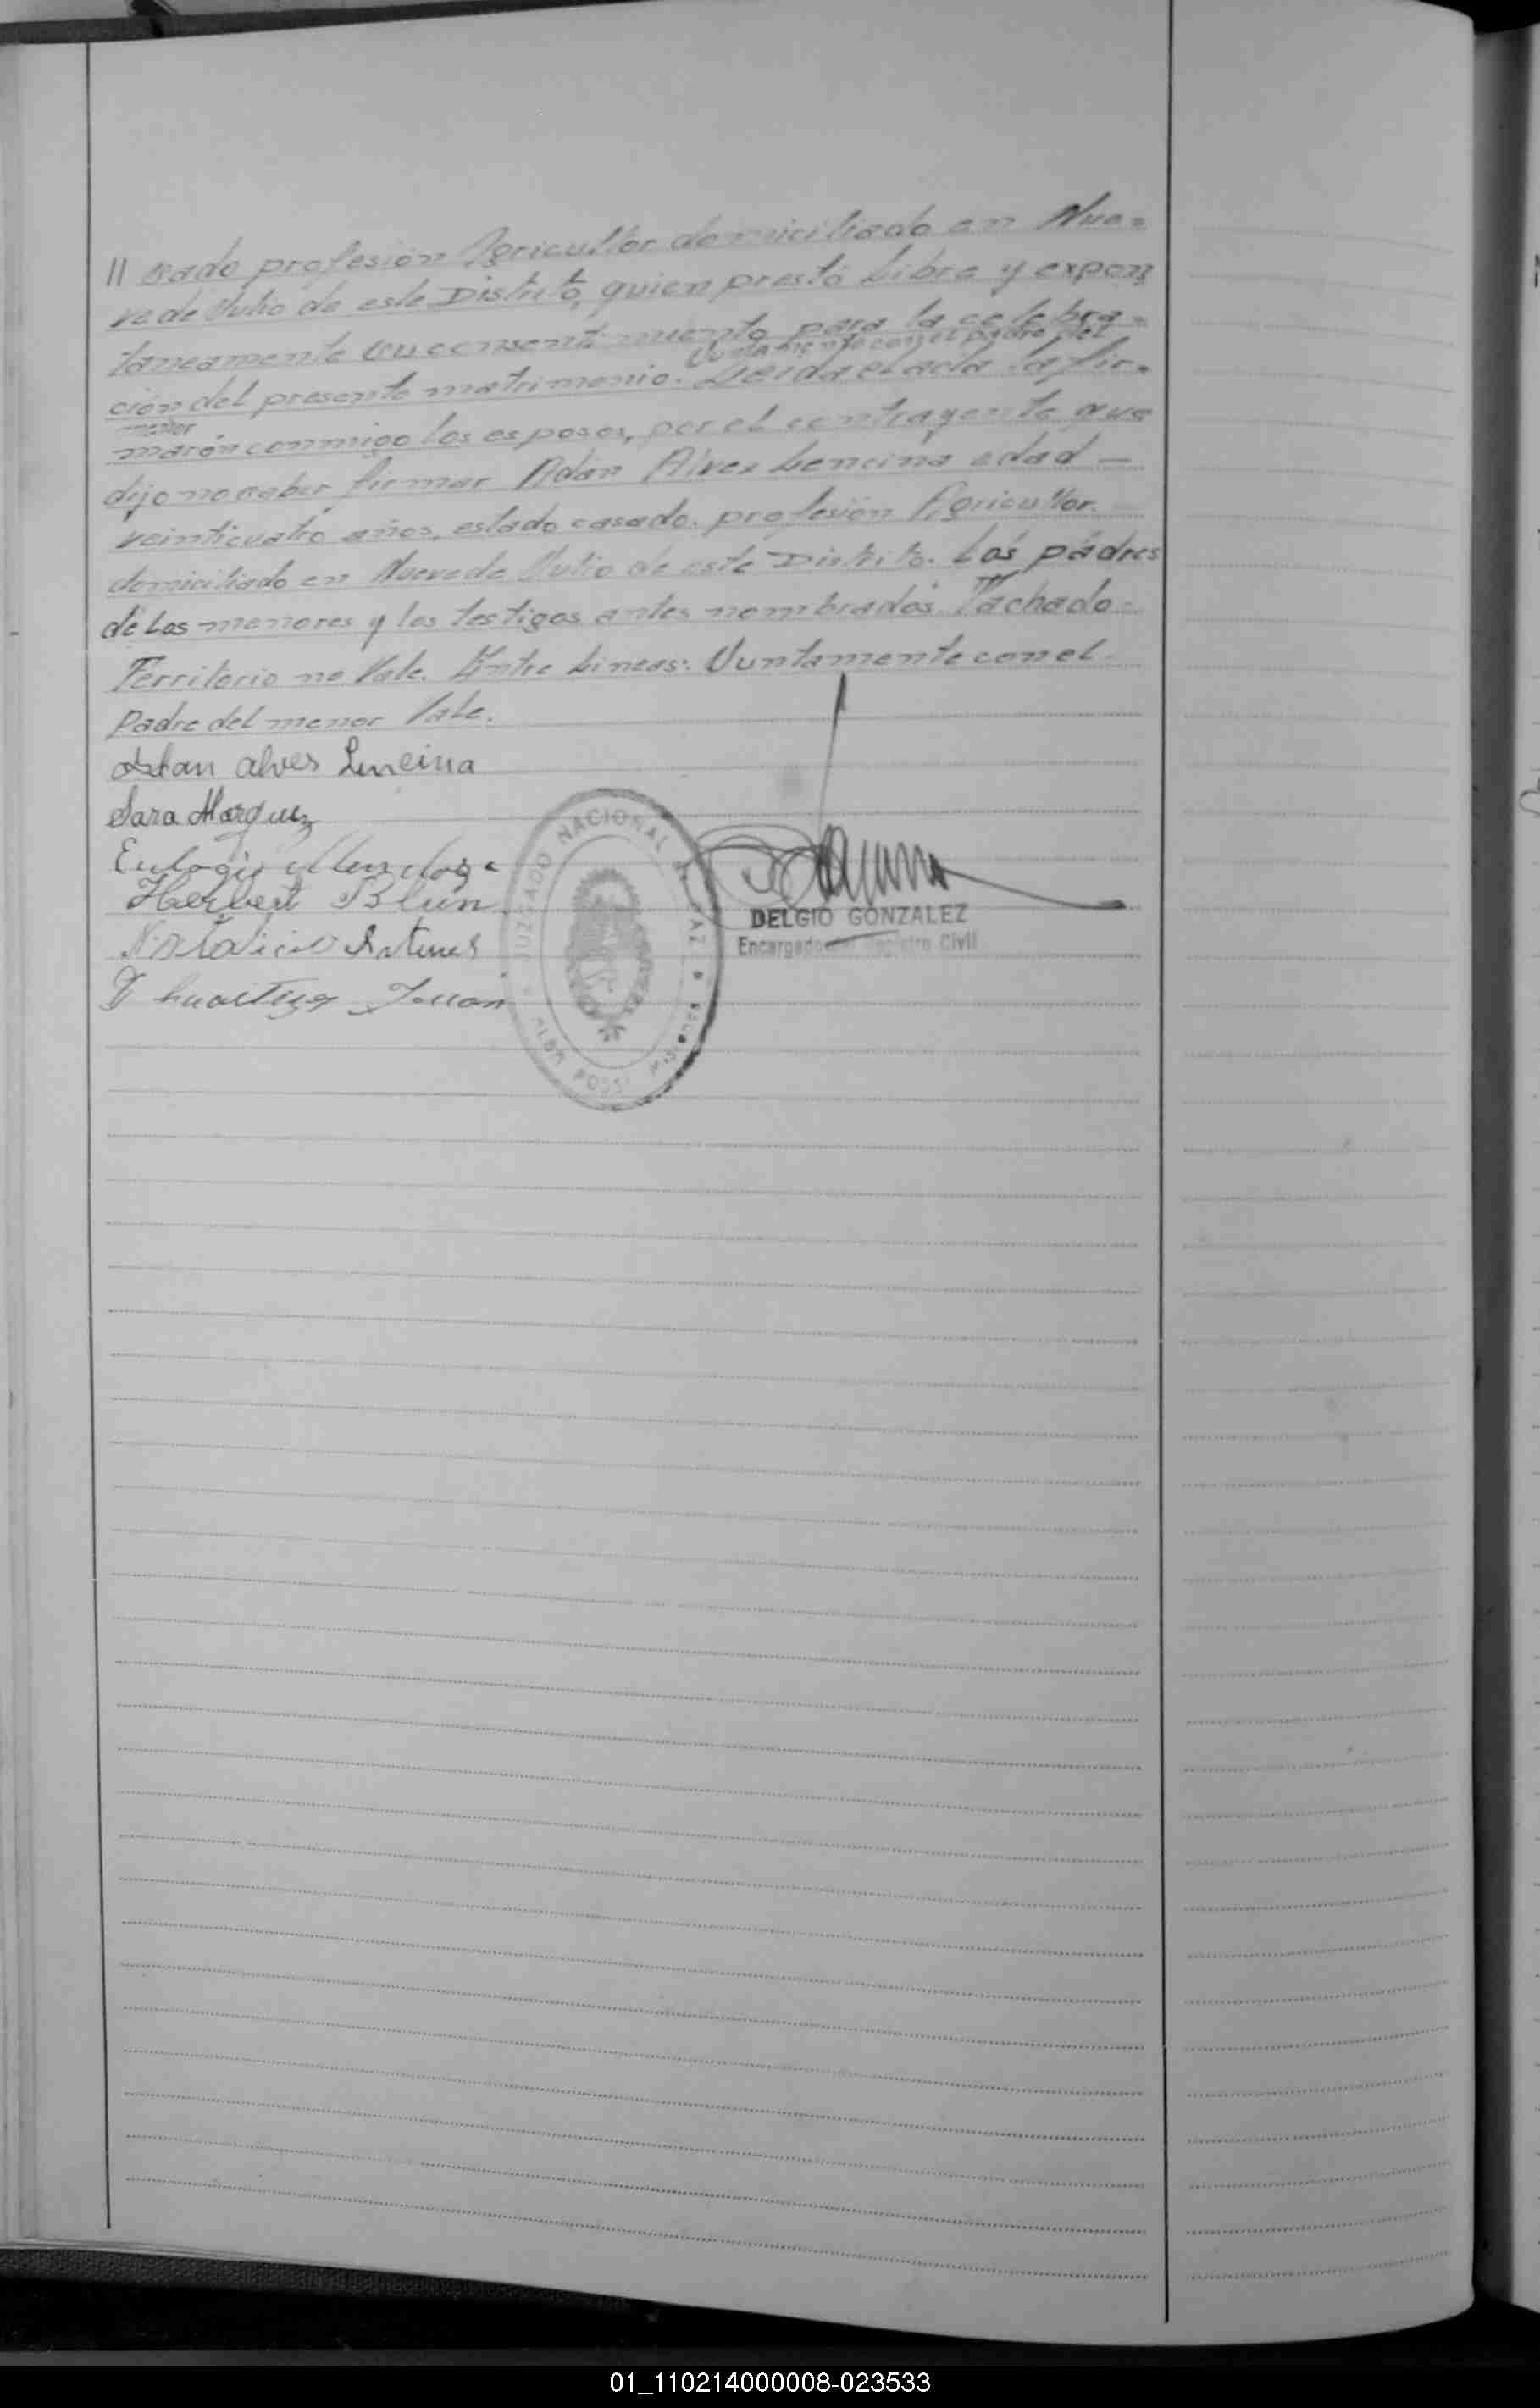 // sado profesión Agricultor domiciliado en Nue=
ve de Julio de este Distrito, quien prestó Libre y expon
taneamente su consentimiento para la celebra=
Juntamente con el padre del
ción del presente matrimonio. Leida el acta la fir=
menor
marón conmigo los esposos, por el contrayente que
dijo no saber firmar Adán Alves Lencina edad —
veinticuatro años, estado casado. profesión Agricultor.
domiciliado en Nueve de Julio de este Distrito. Los padres
de Los menores y los testigos antes nombrados. Tachado=
Territorio no Vale. Entre Lineas: Juntamente con el
Padre del menor Vale.
Adan alves Lencina
Sara Marquez
Eulogio Mendoza
Herbert Blun
Juan
JUZGADO NACIONAL DE PAZ
ALBA POSSE MISIONES
DELGIO GONZALEZ
Encargado del Registro Civil
01_110214000008-023533